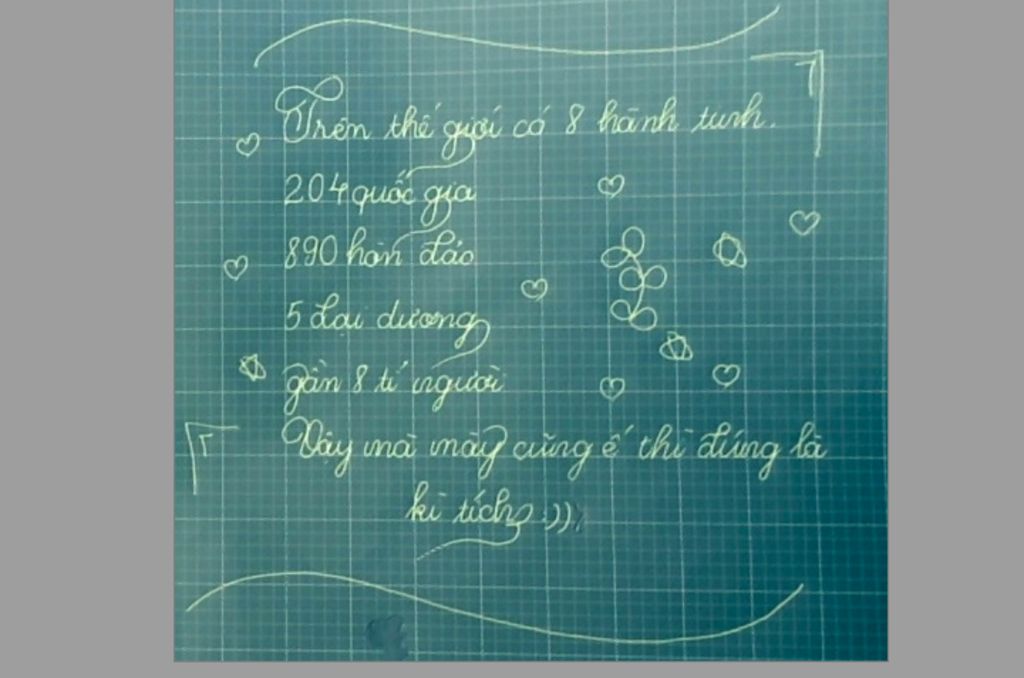 Trên thế giới có 8 hành tinh.
204 quốc gia
890 hòn đảo
5 đại dương
gần 8 tỉ người
Vậy mà mày cũng ế thì đúng là
kì tích :))